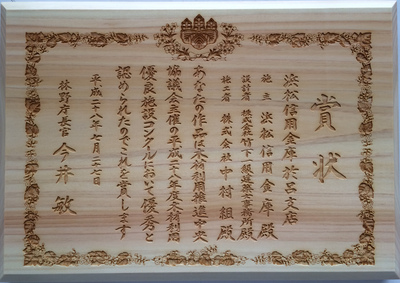 賞状
浜松信用金庫於呂支店
施主 浜松信用金庫殿
設計者 株式会社竹下一級建築士事務所殿
施工者 株式会社中村組殿
あなたの作品は木材利用推進中央
協議会主催の平成二十八年度木材利用
優良施設コンクールにおいて優秀と
認められたのでこれを賞します
平成二十八年十月二十七日
林野庁長官 今井敏